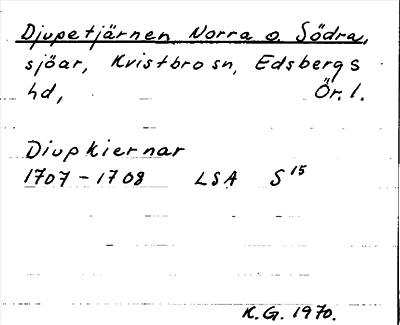 Djupetjärnen Norra o. Södra,
sjöar, Kvistbro sn, Edsbergs
hd, Ör. l.
Diupkiernar
1707-1708 LSA S 15
K.G. 1970.